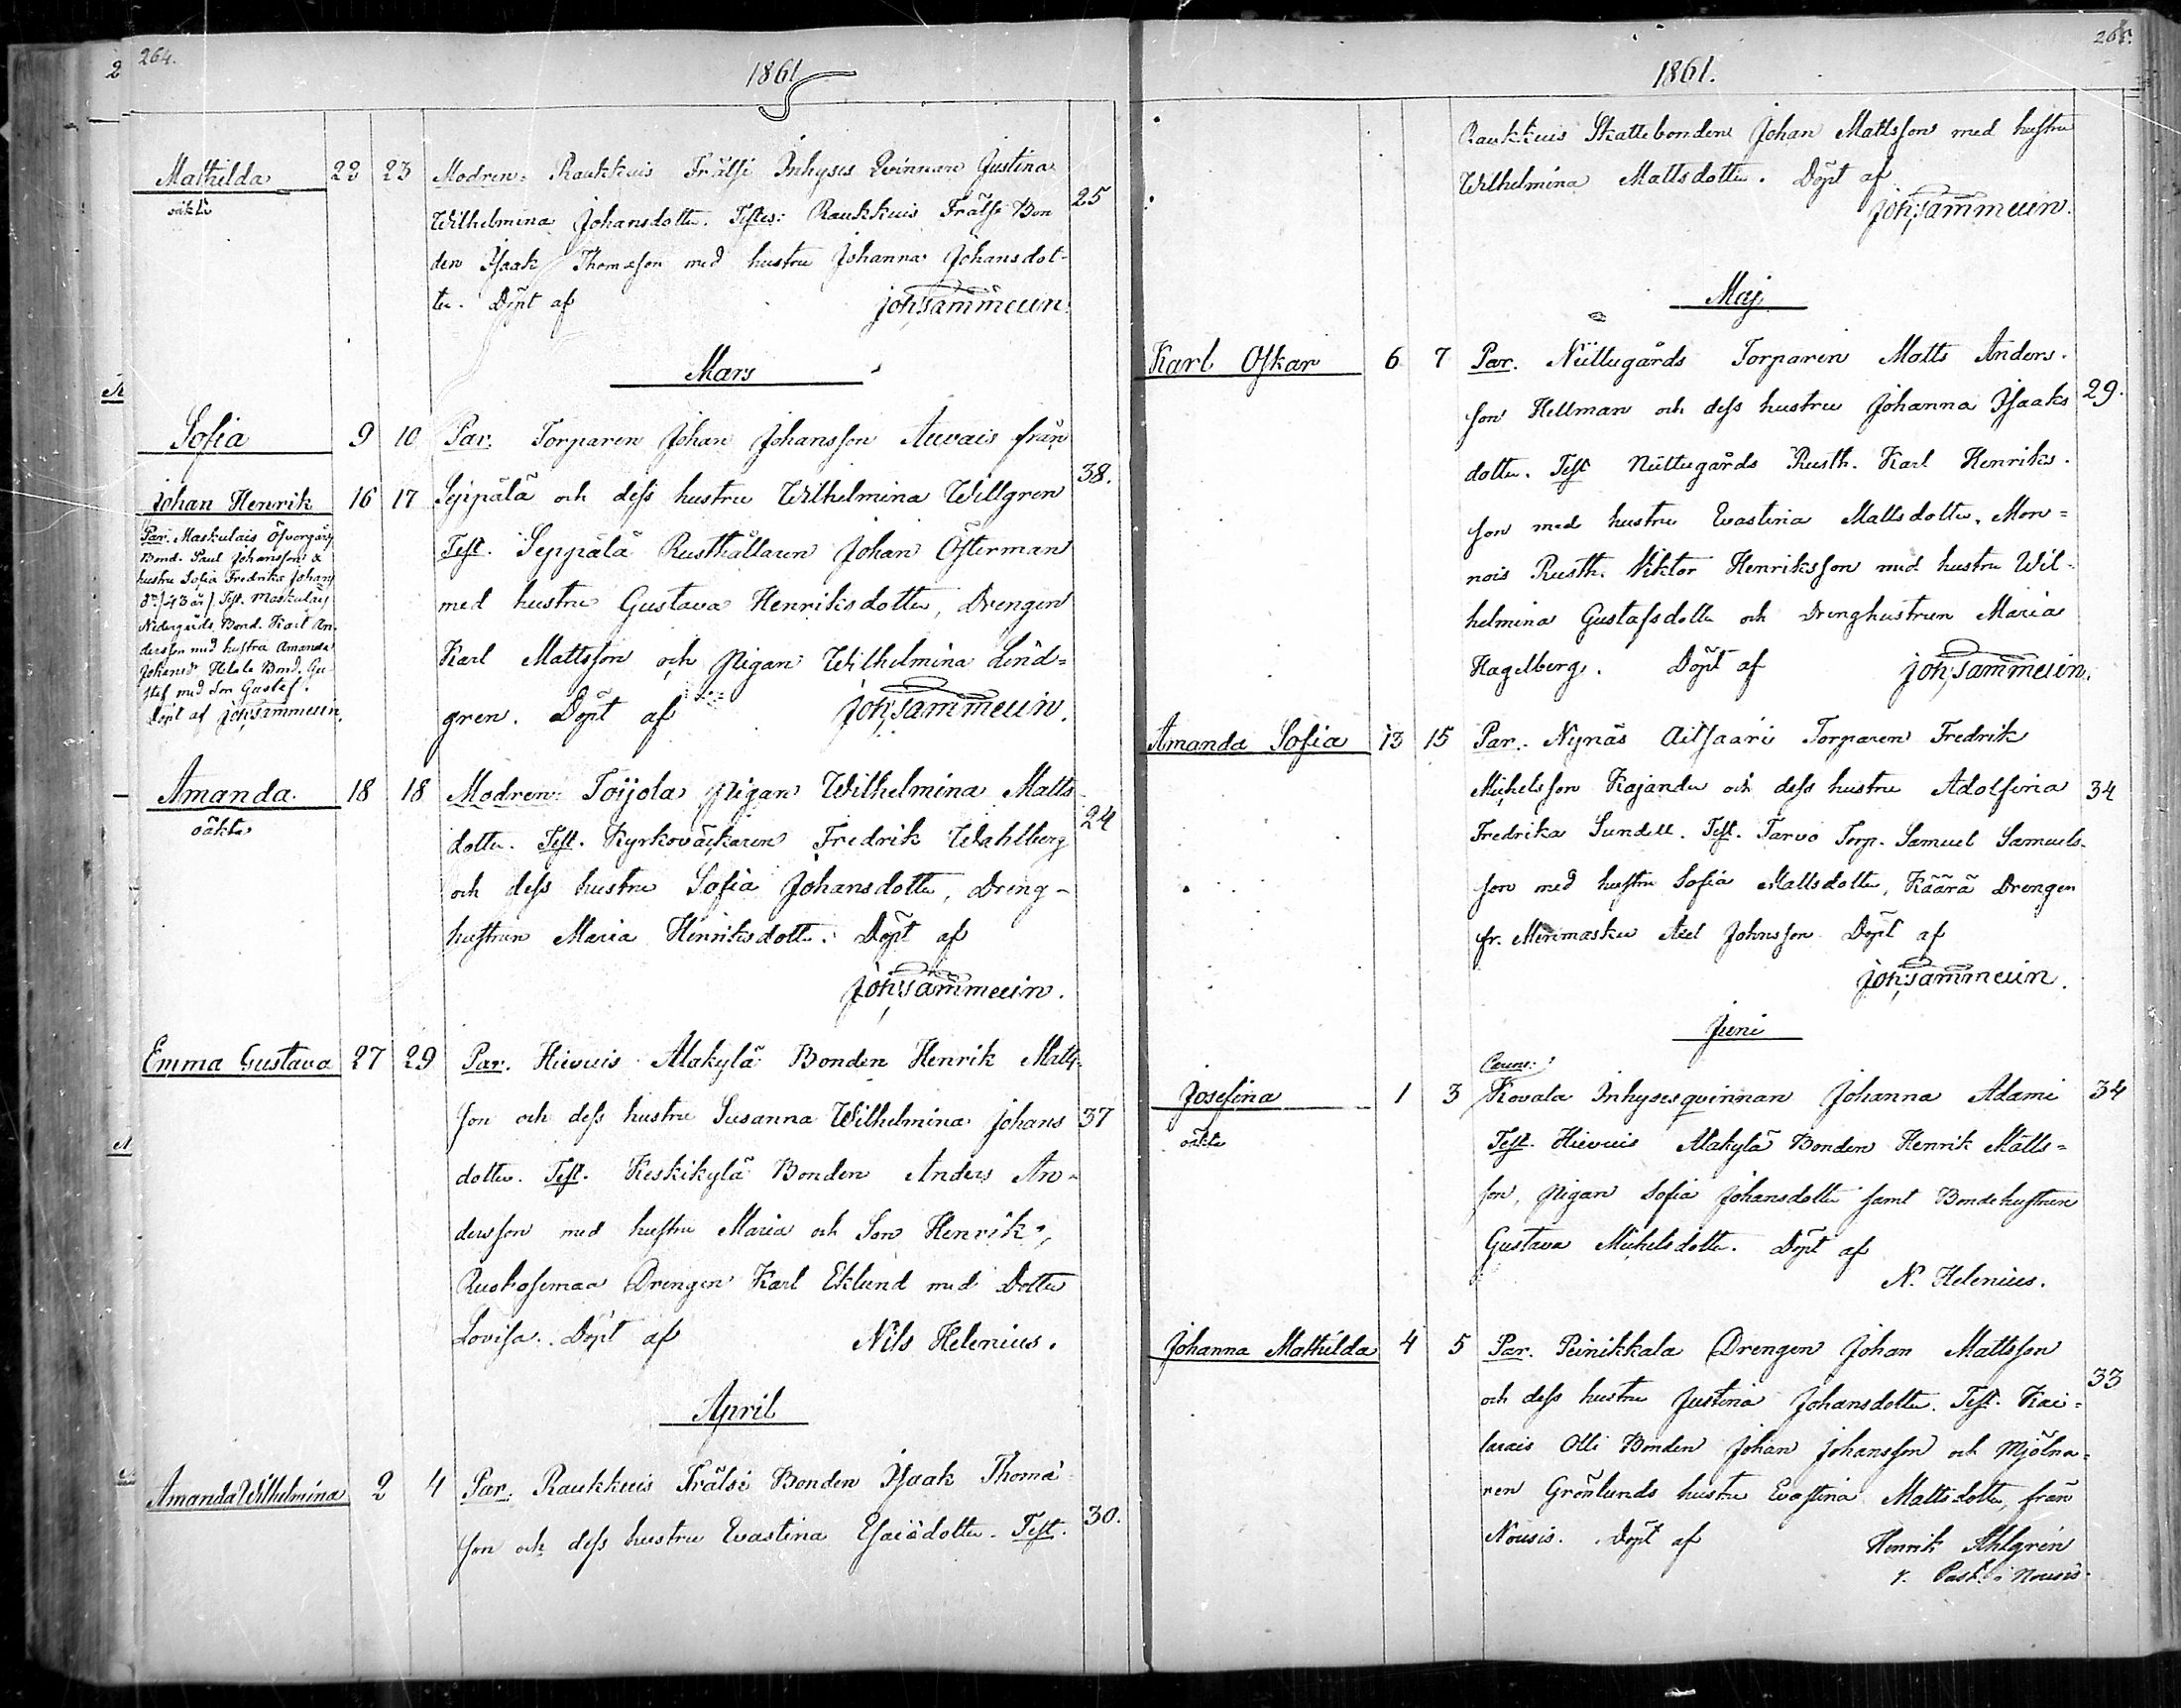 264.
1861
Mathilda 22 23 Modren: Raukkuis Frälse Inhyses Qvinnan Justina
oäkta
Wilhelmina Johansdotter. Testes: Raukkuis Frälse Bon 25
den Isaak Thomasson med hustru Johanna Johansdot-
ter. Döpt af Joh: Sammelin.
Mars
Sofia 9 10 Par. Torparen Johan Johansson Auvais från
38.
Seppälä och dess hustru Wilhelmina Willgren
Test. Seppälä Rusthållaren Johan Österman
med hustru Gustava Henriksdotter, Drengen
Karl Mattsson och Pigan Wilhelmina Lind=
gren. Döpt af Joh: Sammelin.
Johan Henrik 16 17
Par. Maskulais Öfvergårds
Bond. Paul Johansson &
hustru Sofia Fredrika Johans
dr / 43 år / Test. Maskulais
Nedergårds Bond. Karl An-
dersson med hustru Amanda
Johansdr Hele Bond. Gu
staf med Son Gustaf.
Döpt af Joh: Sammelin.
Amanda 18 18 Modren: Toijola Pigan Wilhelmina Matts-
oäkta 24
dotter. Test. Kyrkoväktaren Fredrik Wahlberg
och dess hustru Sofia Johansdotter, Dreng-
hustrun Maria Henriksdotter. Döpt af
Joh: Sammelin.
Emma Gustava 27 29 Par. Hievuis Alakylä Bonden Henrik Matts-
son och dess hustru Susanna Wilhelmina Johans 37
dotter. Test. Keskikylä Bonden Anders An-
dersson med hustru Maria och Son Henrik,
Ruokosemaa Drengen Karl Eklund med Dotter
Lovisa. Döpt af Nils Helenius.
April
Amanda Wilhelmina 2 4 Par. Raukkuis Frälse Bonden Isaak Thoma
son och dess hustru Evastina Esaiædotter. Test. 30.
265.
1861.
Raukkuis Skattebonden Johan Mattsson med hustru
Wilhelmina Mattsdotter. Döpt af
Joh: Sammelin.
Maj
Karl Oskar 6 7 Par. Niittugårds Torparen Matts Anders-
son Hellman och dess hustru Johanna Isaaks 29.
dotter. Test Niittugårds Rusth. Karl Henriks-
son med hustru Evastina Mattsdotter, Mon=
nois Rusth. Viktor Henriksson med hustru Wil-
helmina Gustafsdotter och Drenghustrun Maria
Hagelberg. Döpt af Joh: Sammelin.
Amanda Sofia 13 15 Par. Nynäs Aitsaari Torparen Fredrik
Michelsson Kajander och dess hustru Adolfina 34
Fredrika Sundell. Test. Tarvo Torp. Samuel Samuels-
son med hustru Sofia Mattsdotter, Käärä Drengen
fr. Merimasku Axel Johnsson Döpt af
Joh: Sammelin.
Juni
Parens:
Josefina 1 3 Kovala Inhysesqvinnan Johanna Adami 34
oäkta
Test. Hievuis Alakylä Bonden Henrik Matts=
son, Pigan Sofia Johansdotter samt Bondehustrun
Gustava Michelsdotter. Döpt af
N. Helenius.
Johanna Mathilda 4 5 Par. Peinikkala Drengen Johan Mattsson
33
och dess hustru Justina Johansdotter. Test. Kai=
larais Olli Bonden Johan Johansson och Mjölna=
ren Grönlunds hustru Evastina Mattsdotter, från
Nousis. Döpt af Henrik Ahlgren
v. Past. i Nousis.